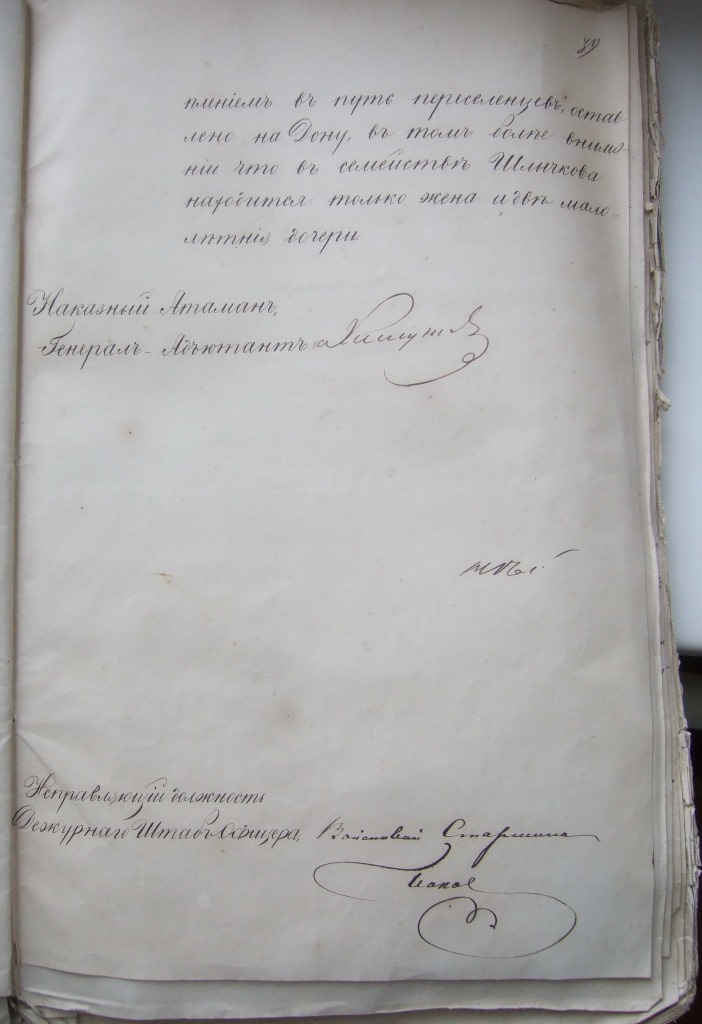 89
пленіемъ въ путь переселенцевъ, остав-
лено на Дону, въ томъ болѣе внима-
ніи что въ семействѣ Шлычкова
находится только жена и двѣ мало-
лѣтнія дочери.
Наказный Атаманъ,
Генералъ-Адъютантъ Хомутовъ
Исправляющій должность
Дежурнаго Штабъ-Офицера, Войсковой Старшина
Попов